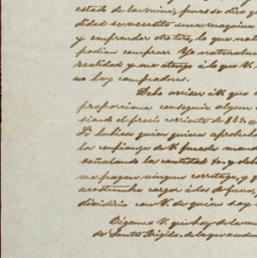 estado de la mina, pues se dise q
didad se necesita una maquina
y emprender otra tiro, lo que nat
podian comprar. Yo naturalme
realidad y me atengo á lo que V.
no hay compradores.
Debo avisar á V. que
proporciona conseguir algun
siendo el precio corriente de
Si hubiese quien quiera aprobecha
la confianza de V. puede mand
señalando la cantidad &a, y debi
me pagan ningun corretage, y
acostumbra cargar á los de fuera,
dividirlo con V. de quien soy
Digame V. que hay de la
de Santa Brigida, de la que